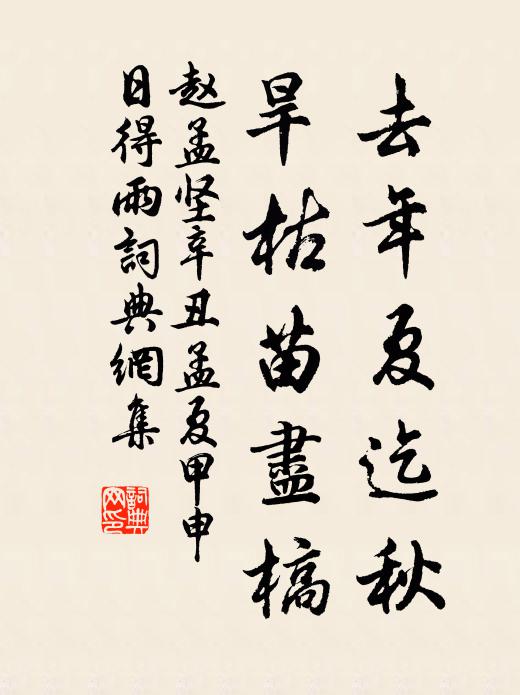 去年夏迄秋
旱枯苗盡槁
赵孟坚辛丑孟夏甲申
日得雨詞典網集
詞典网印